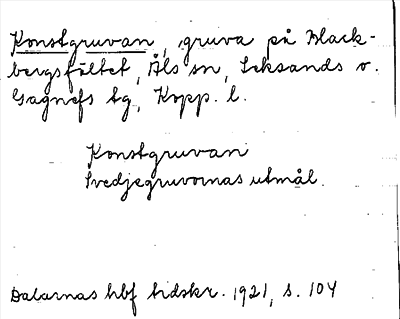 Konstgruvan, gruva på Black-
bergsfältet, Åls sn, Leksands o.
Gagnefs tg, Kopp. l.
Konstgruvan
Svedjegruvornas utmål.
Dalarnas hbf tidskr. 1921, s. 104